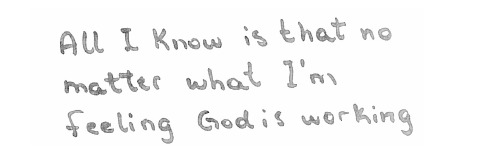 All I Know is that no
matter what I'm
feeling God is working